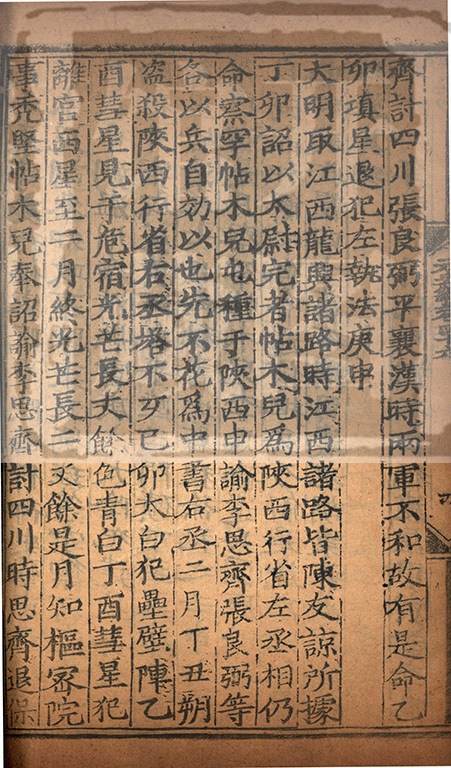 齊計四川張良弼平襄漢時兩軍不和故有是命乙
卯填星退犯左執法庚申
大明取江西龍興諸路時江西諸路皆陳友諒所據
丁卯詔以太尉完者帖木兒爲陝西行省左丞相仍
命察罕帖木兒屯種于陝西申諭李思齊張良弼等
各以兵自効以也先不花爲中書右丞二月丁丑朔
盗殺陝西行省右丞塔不歹己卯太白犯壘壁陣乙
酉彗星見于危宿光芒長丈餘色青白丁酉彗星犯
離宮西星至二月終光芒長二丈餘是月知樞密院
事禿堅帖木兒奉詔諭李思齊討四川時思齊退保